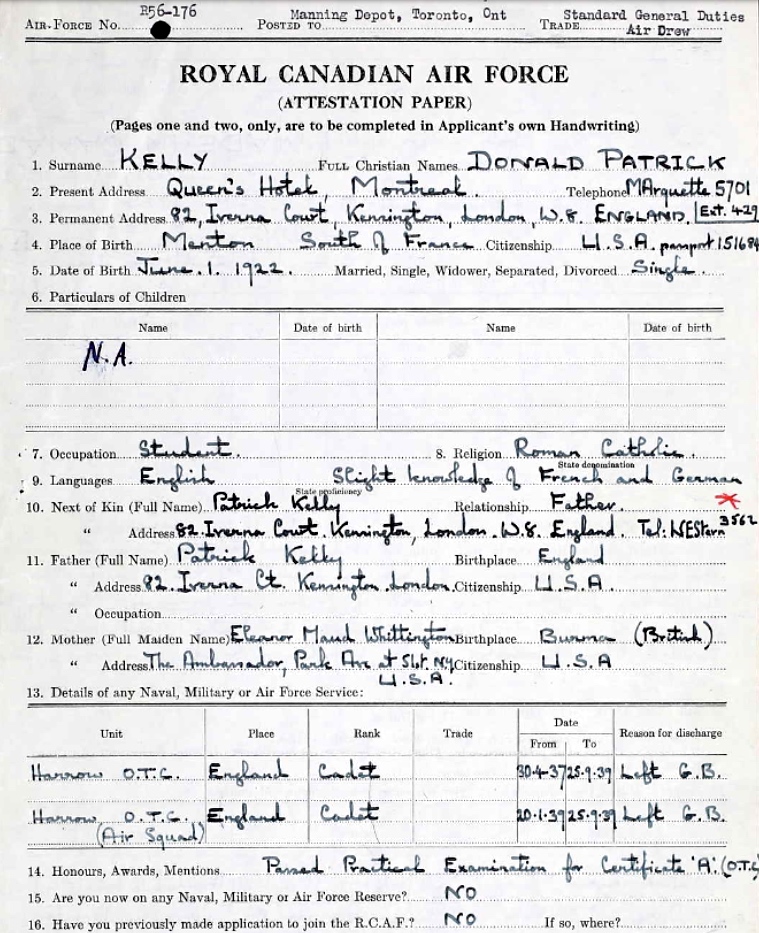 AIR FORCE No. R56-176 POSTED TO Manning Depot, Toronto, Ont TRADE Standard General Duties
Air Drew
ROYAL CANADIAN AIR FORCE
(ATTESTATION PAPER)
(Pages one and two, only, are to be completed in Applicant's own Handwriting)
1. Surname KELLY FULL Christian Names DONALD PATRICK
2. Present Address Queen's Hotel, Montreal. Telephone MArquette 5701
3. Permanent Address 82, Iverna Court, Kennington, London, W.8. ENGLAND. Ext. 429
4. Place of Birth Menton South of France Citizenship U.S.A. passport 151684
5. Date of Birth June. 1. 1922. Married, Single, Widower, Separated, Divorced Single.
6. Particulars of Children
Name Date of birth Name Date of birth
N.A.
7. Occupation Student. 8. Religion Roman Catholic.
State denomination
9. Languages English Slight knowledge of French and German
State proficiency
10. Next of Kin (Full Name) Patrick Kelly Relationship Father.
" Address 82. Iverna Court. Kennington, London. W.8. England. Tel: WEStern 3562
11. Father (Full Name) Patrick Kelly Birthplace England
" Address 82. Iverna Ct. Kennington. London. Citizenship U.S.A.
" Occupation
12. Mother (Full Maiden Name) Eleanor Maud Whittington Birthplace Burma (British)
" Address The Ambassador, Park Ave at 51st. NY Citizenship U.S.A
U.S.A.
13. Details of any Naval, Military or Air Force Service:
Unit Place Rank Trade Date Reason for discharge
From To
Harrow O.T.C. England Cadet 30.4.37 25.9.39 Left G.B.
Harrow O.T.C. England Cadet 20.1.39 25.9.39 Left G.B.
(Air Squad)
14. Honours, Awards, Mentions Passed Practical Examination for Certificate 'A'. (O.T.C
15. Are you now on any Naval, Military or Air Force Reserve? NO
16. Have you previously made application to join the R.C.A.F.? NO If so, where?